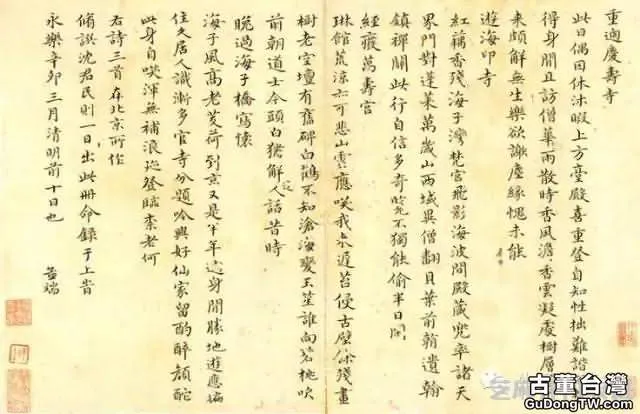 重過慶壽寺
此日偶因休沐暇上方臺殿喜重登自知性拙難諧
得身閒且訪僧華雨散時香風澹香雲凝處樹層
來頗解無生樂欲謝塵緣愧未能
遊海印寺
紅藕香殘海子灣梵宮飛影海波間殿藏兜率諸天
界門對蓬萊萬歲山西域異僧翻貝葉前朝遺翰
鎮禪關此行自信多奇覽不獨能偷半日閒
經廢萬壽宮
琳館荒涼亦可悲山雲應笑我來遲苔侵古壁餘殘畫
樹老空壇有舊碑白鶴不知滄海變玉笙誰向碧桃吹
前朝道士今頭白猶解人話昔時
晚過海子橋寫懷
海子風高老芰荷到京又是半年過身閒勝地遊應遍
住久居人識漸多官寺分題吟興好仙家留酌醉顏酡
此身自笑渾無補浪跡登臨奈老何
右詩三首在北京所作
脩譔沈君民則一日出此冊命錄于上旹
永樂辛卯三月清明前十日也
孟端
古董台灣
GuDongTW.com